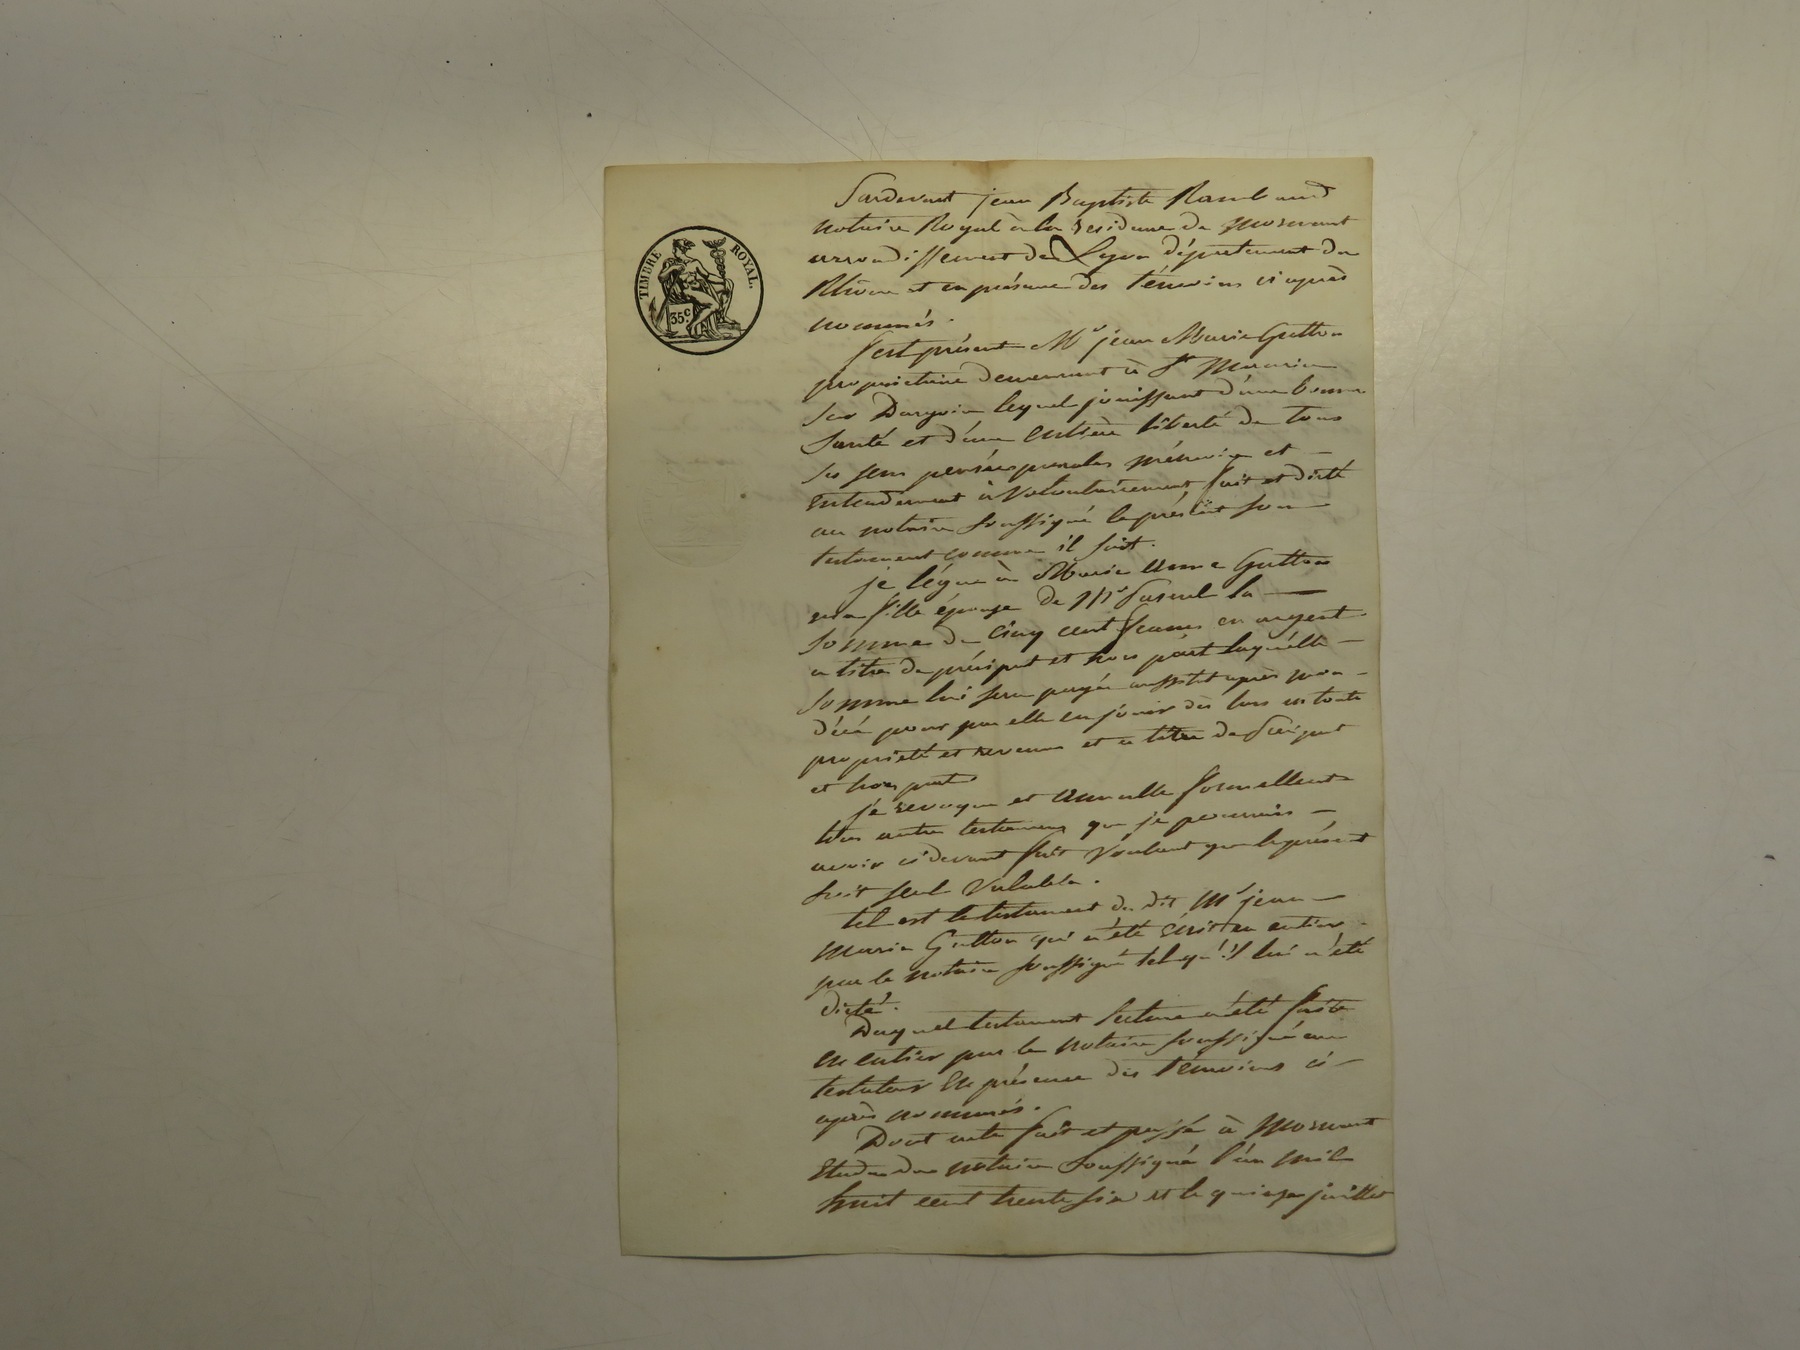 TIMBRE ROYAL.
35c.
Pardevant jean Baptiste Rambaud
notaire Royal à la residence de Mornant
arrondissement de Lyon département du
Rhône et en présence des témoins ci après
nommés.
S'est présenté Mr jean Marie Gutton
propriétaire demeurant à St
sur lequel jouissant d'une bonne
santé et d'une entière liberté de tous
ses sens mémoire et
Entendement à volontairement fait et dicté
au notaire soussigné le présent son
testament comme il suit.
je légue à Marie Anne Gutton
ma fille épouse de Mr la
somme de cinq cent francs en argent
a titre de préciput et hors part laquelle
somme lui sera payée aussitot après mon
décé pour par elle en jouir dès lors en toute
propriété et revenus et a titre de Préciput
et hors part.
je revoque et annulle formellement
tous autres testaments que je pourrais
avoir ci devant fait voulant que le présent
soit seul valable.
tel est le testament du dit Mr jean
Marie Gutton qui a été écrit en entier
par le notaire soussigné tel qu'il lui a été
dicté.
Duquel testament lecture a été faite
en entier par le notaire soussigné au
testateur en présence des témoins ci
après nommés.
Dont acte fait et passé à Mornant
Etude du notaire soussigné l'an mil
huit cent trente six et le quinze juillet